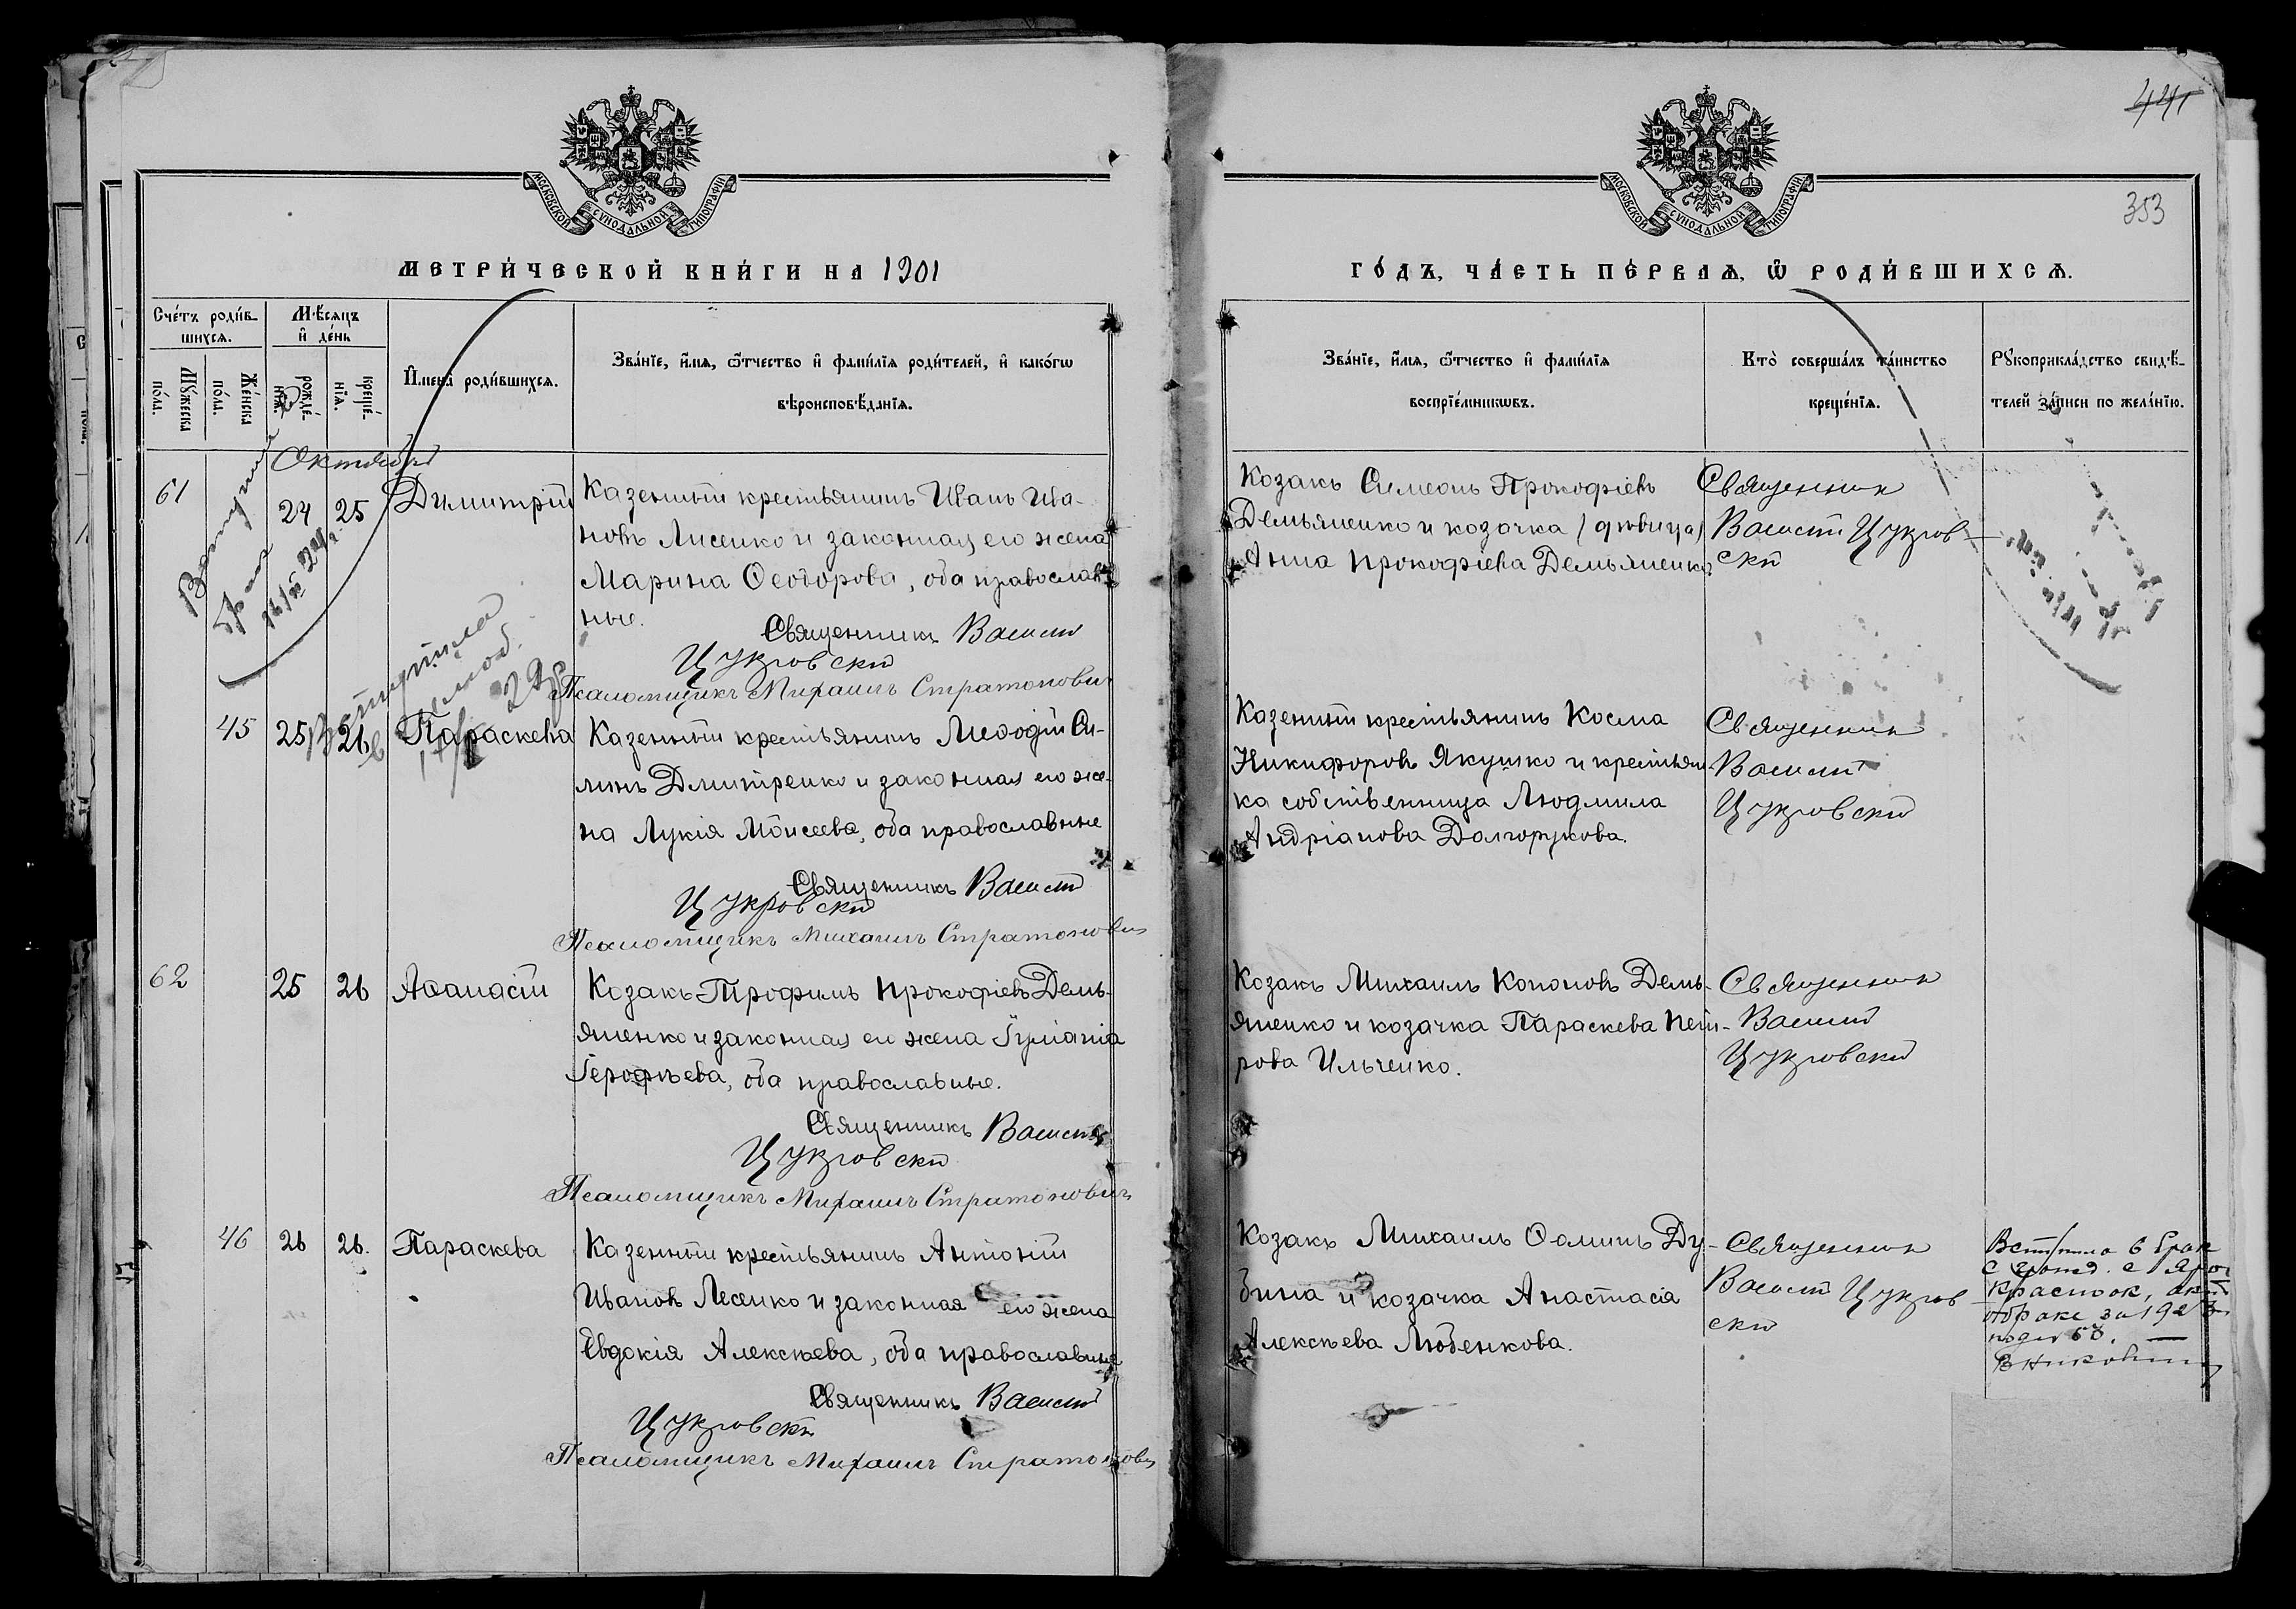 441
353
МОСКОВСКОЙ СѴНОДАЛЬНОЙ ТИПОГРАФІИ
МОСКОВСКОЙ СѴНОДАЛЬНОЙ ТИПОГРАФІИ
МЕТРИ́ЧЕСКОЙ КНИ́ГИ НА 1901
ГО́ДЪ, ЧА́СТЬ ПЕ́РВАѦ, Ѿ РОДИ́ВШИХСѦ.
Сче́тъ роди́в-
шихсѧ.
Мꙋ́жеска
по́ла.
Же́нска
по́ла.
Мѣ́сѧцъ
и҆ де́нь
рожде́-
нїѧ.
креще́-
нїѧ.
И҆мена̀ роди́вшихсѧ.
Зва́нїе, и҆́мѧ, ѻ҆́тчество и҆ фами́лїѧ роди́телей, и҆ како́гѡ
вѣроисповѣ́данїѧ.
Зва́нїе, и҆́мѧ, ѻ҆́тчество и҆ фами́лїѧ
воспрїе́мникѡвъ.
Кто̀ соверша́лъ та́инство
креще́нїѧ.
Рꙋкоприкла́дство свидѣ́-
телей за́писи по жела́нїю.
Октября
61 24 25 Димитрій
Казенный крестьянинъ Иванъ Ива-
новъ Лисенко и законная его жена
Марина Ѳеодорова, оба православ-
ные.
Священникъ Василій
Цукровскій
Псаломщикъ Михаилъ Стратонович
Козакъ Симеонъ Прокофіевъ
Демьяненко и козачка (дѣвица)
Анна Прокофіева Демьяненко
Священник
Василій Цукров-
скій
45 25 26 Параскева
Казенный крестьянинъ Меѳодій Си-
линъ Дмитренко и законная его же-
на Лукія Моисеева, оба православные
Священникъ Василій
Цукровскій
Псаломщикъ Михаилъ Стратонович
Казенный крестьянинъ Косма
Никифоровъ Якушко и крестьян-
ка собственница Людмила
Андріанова Долгорукова.
Священник
Василій
Цукровскій
62 25 26 Аѳанасій
Козакъ Трофимъ Прокофіевъ Демь-
яненко и законная его жена Іуліанія
Іерофѣева, оба православные.
Священникъ Василій
Цукровскій
Псаломщикъ Михаилъ Стратонович
Козакъ Михаилъ Кононовъ Демь-
яненко и козачка Параскева Пет-
рова Ильченко.
Священник
Василій
Цукровскій
46 26 26. Параскева
Казенный крестьянинъ Антоній
Ивановъ Лесенко и законная его жена
Евдокія Алексѣева, оба православные
Священникъ Василій
Цукровскій
Псаломщикъ Михаилъ Стратонович
Козакъ Михаилъ Ѳоминъ Ду-
бина и козачка Анастасія
Алексѣева Любенкова.
Священник
Василій Цукров-
скій
Вступила в брак
с
о браке за 192